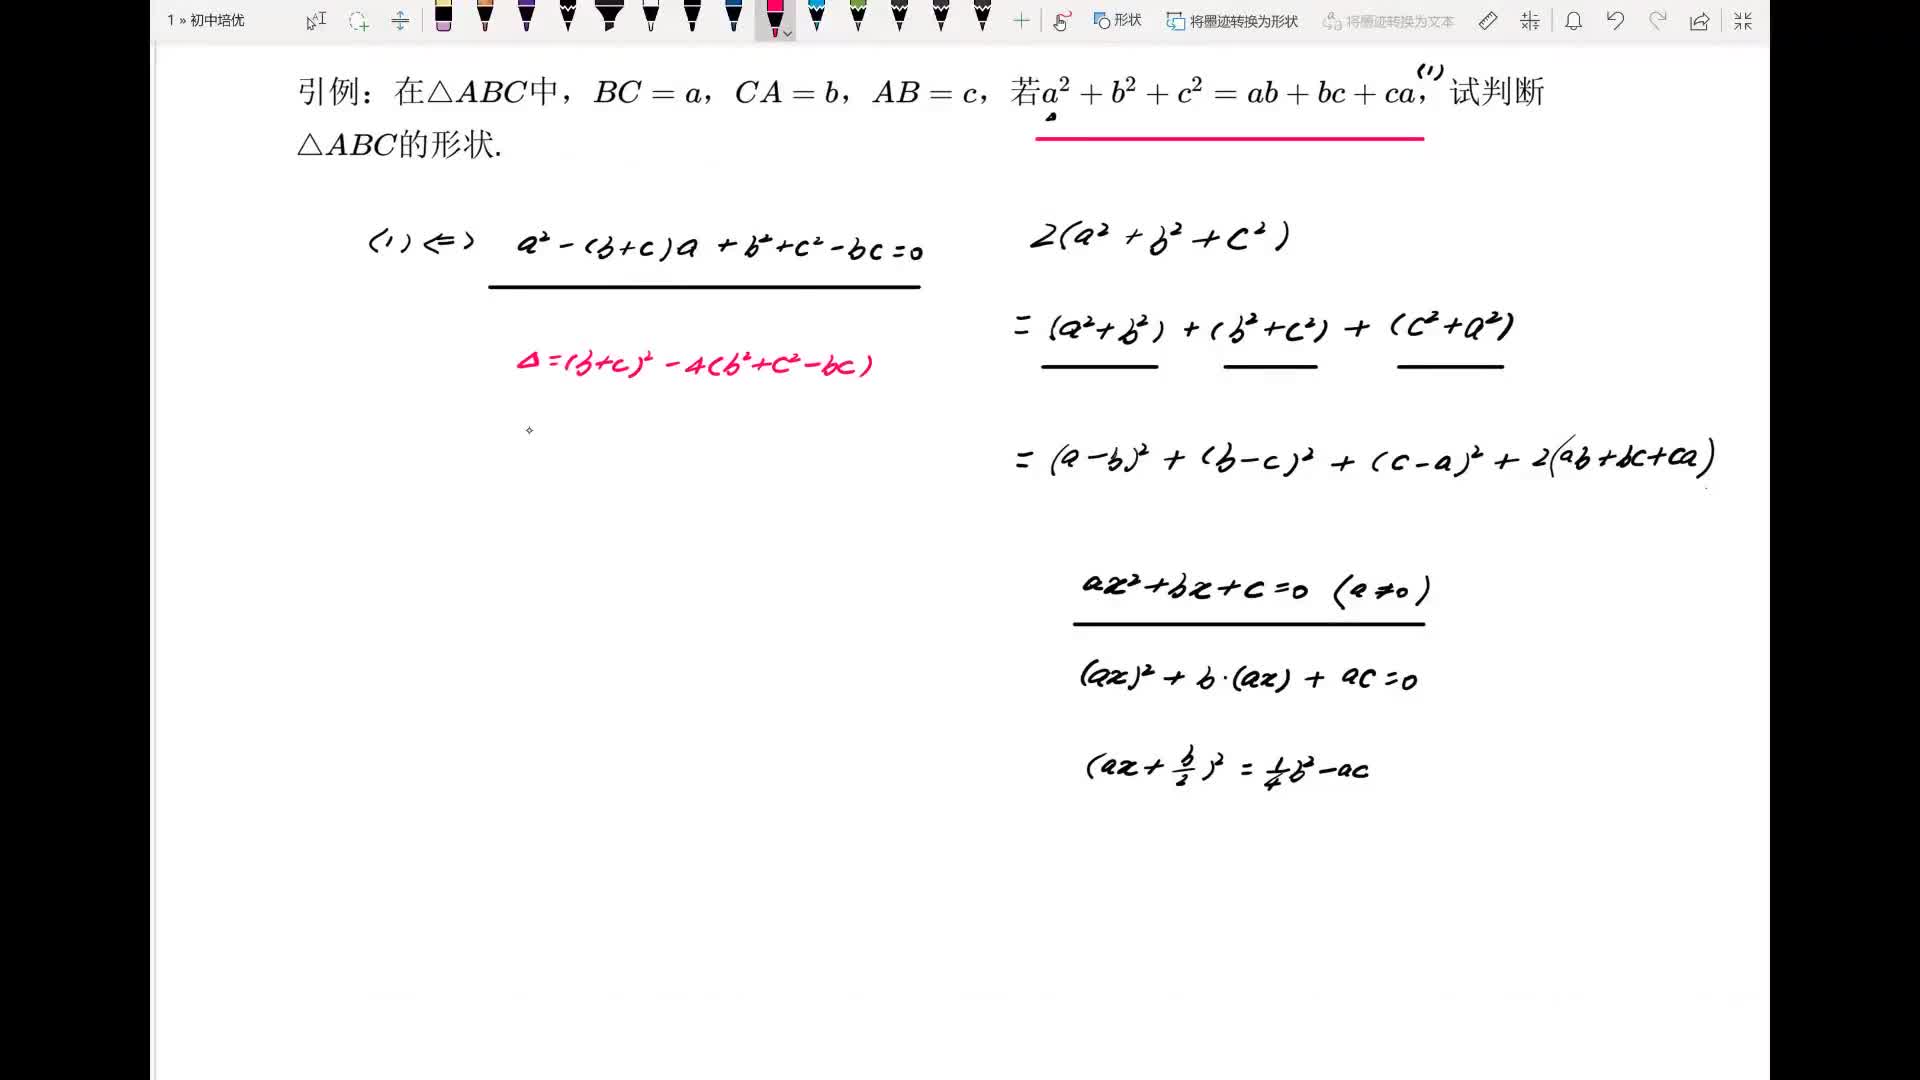 1 » 初中培优
形状
将墨迹转换为形状
将墨迹转换为文本
引例：在△ABC中，BC = a，CA = b，AB = c，若a² + b² + c² = ab + bc + ca，(1) 试判断
△ABC的形状.
(1) <=> a² - (b+c)a + b² + c² - bc = 0
Δ = (b+c)² - 4(b² + c² - bc)
2(a² + b² + c²)
= (a² + b²) + (b² + c²) + (c² + a²)
= (a - b)² + (b - c)² + (c - a)² + 2(ab + bc + ca)
ax² + bx + c = 0 (a ≠ 0)
(ax)² + b·(ax) + ac = 0
(ax + b/2)² = 1/4 b² - ac